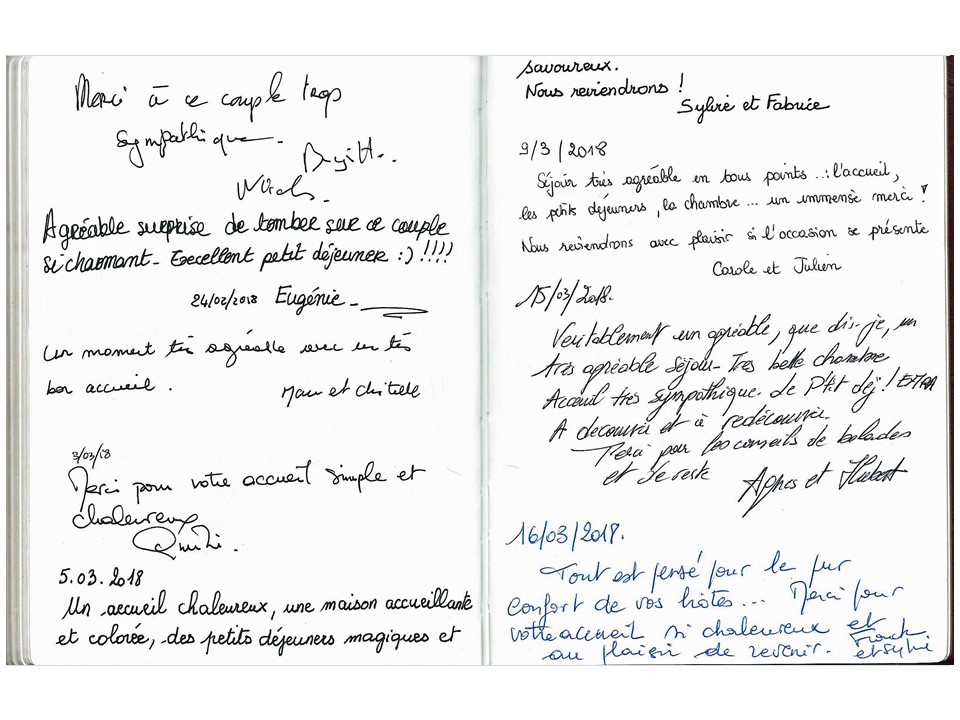 Merci à ce couple trop
sympathique.
Agréable surprise de tomber sur ce couple
si charmant. Excellent petit déjeuner :) !!!!
24/02/2018 Eugénie.
Un moment très agréable avec un très
bon accueil.
et
3/03/18
Merci pour votre accueil simple et
chaleureux
5.03.2018
Un accueil chaleureux, une maison accueillante
et colorée, des petits déjeuners magiques et
savoureux.
Nous reviendrons !
Sylvie et Fabrice
9/3/2018
Séjour très agréable en tous points ...: l'accueil,
les petits déjeuners, la chambre ... un immense merci !
Nous reviendrons avec plaisir si l'occasion se présente
Carole et Julien
15/03/2018.
Veritablement un agréable, que dis-je, un
très agréable séjour. Très belle chambre
Acceuil très sympathique. Le P'tit déj ! EXTRA
A decouvrir et à redécouvrir.
Merci pour les conseils de balades
et le reste Agnes et Hubert
16/03/2018.
Tout est pensé pour le pur
confort de vos hôtes... Merci pour
votre accueil si chaleureux et
au plaisir de revenir. Franck
et Sylvie